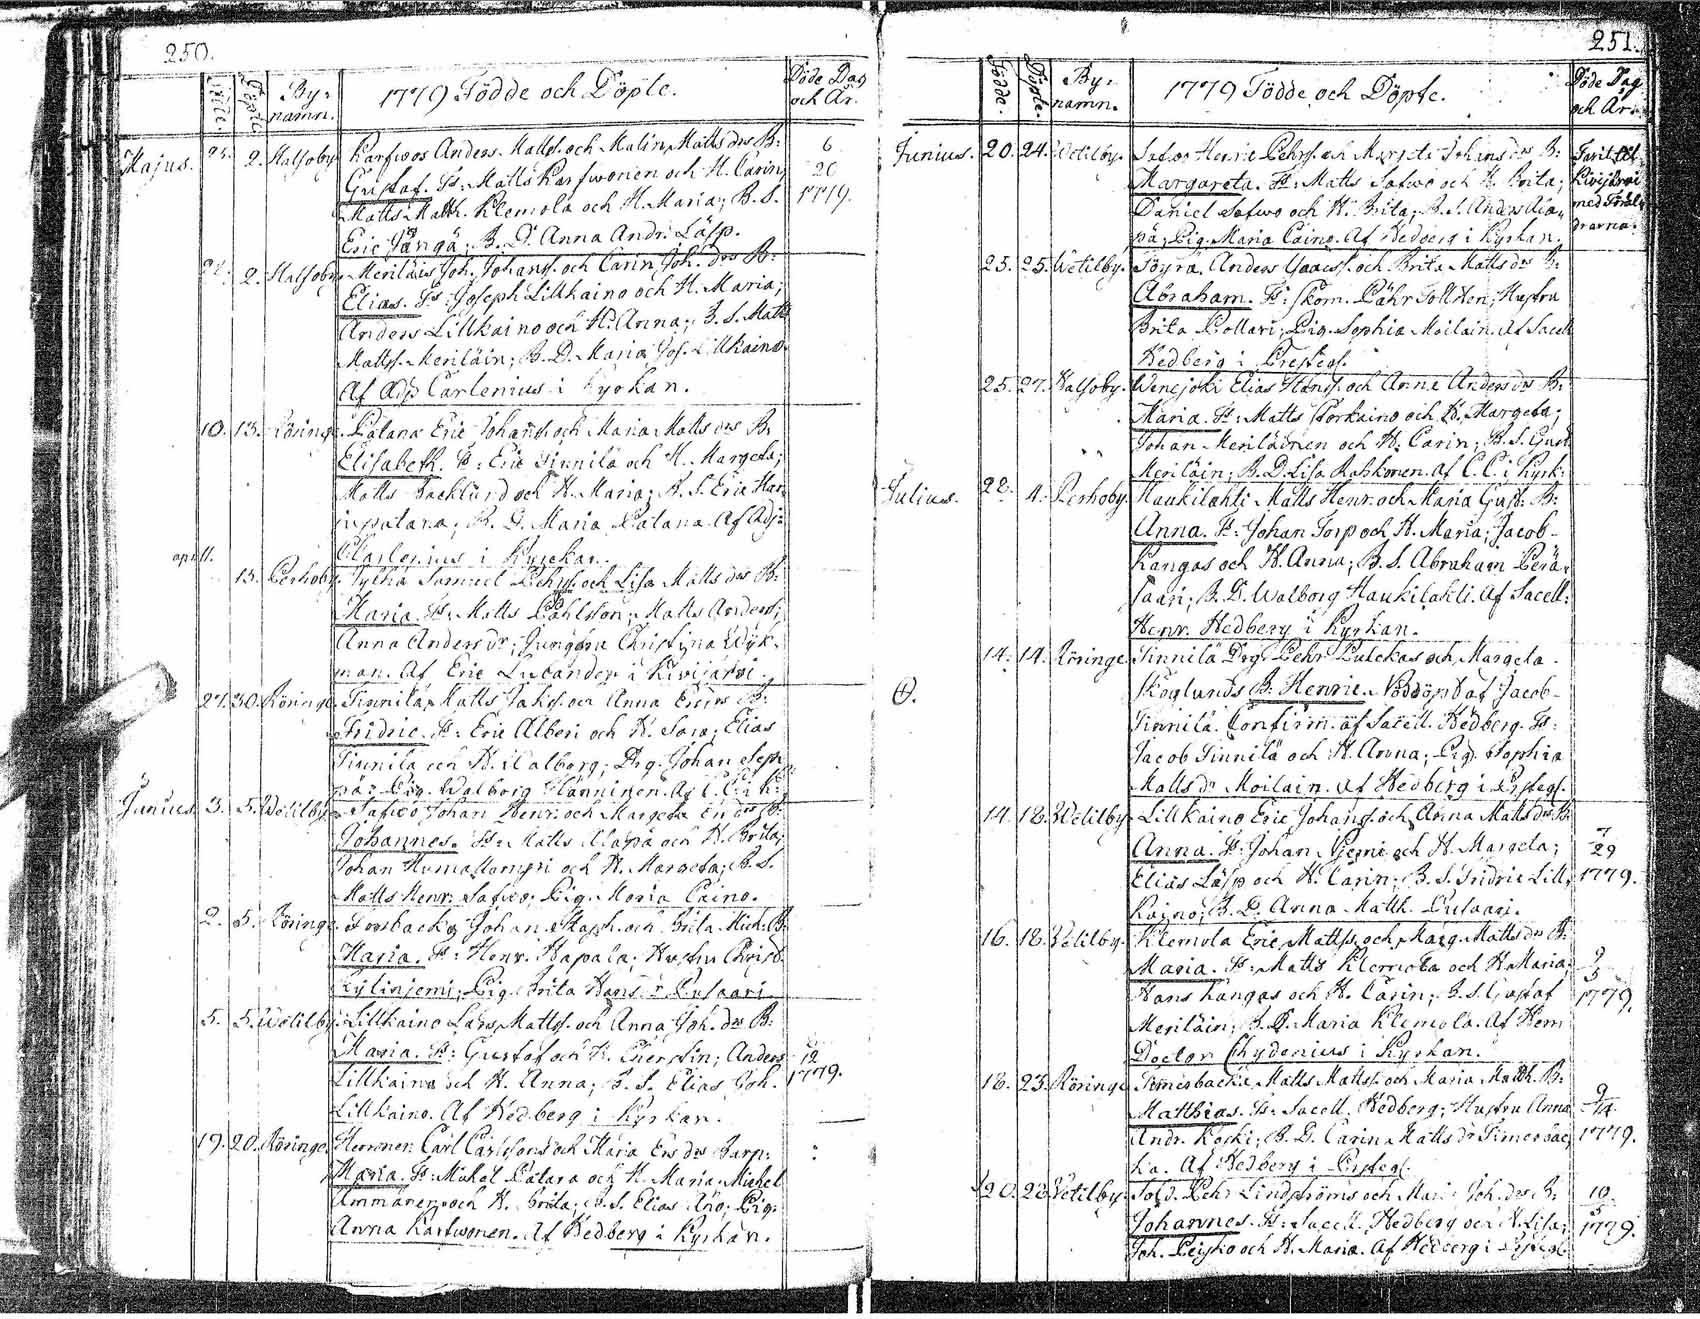 250.
Födde. Döpte. By= namn. 1779 Födde och Döpte. Döde Dag och År.
Majus. 2. Halsoby Karfwos Anders Matts. och Malin Matts dr B: 6
Gustaf. Fs: Matts Karfwonen och H. Carin; 26
Matts Matth. Klemola och H. Maria; B. S. 1779.
Eric Jångä; B. D. Anna Andr. Läsp.
2. Halsoby Meriläis Joh. Johans. och Carin Joh. dr B:
Elias. Fs: Joseph Lillkaino och H. Maria;
Anders Lillkaino och H. Anna; B. S. Matts
Matts. Meriläin; B. D. Maria Jos. Lillkaino.
Af Adj. Carlenius i Kyrkan.
10. 13. Röringe Patana Eric Johans. och Maria Matts dr B:
Elisabeth. Fs: Eric Finnilä och H. Margeta;
Matts Backlund och H. Maria; B. S. Eric Har
jupatana; B. D. Maria Patana. Af Adj:
Carlenius i Kyrckan.
april.
13. Perhoby Samuel Pehrs. och Lisa Matts dr B:
Maria. Fs: Matts Pahlston; Matts Anders;
Anna Anders dr; Jungfru Christina Wyk=
man. Af Eric Lucander i Kivijärvi.
27. 30. Röringe Finnilä Matts Jakss. och Anna Erics B:
Fridric. Fs: Eric Alberi och H. Sara; Elias
Finnilä och H. Walborg; Drg. Johan Sep
pä; Pig. Walborg Hänninen. Af C. C. i K:
Junius 3. 5. Wetilby Safwo Johan Henr. och Margeta B:
Johannes. Fs: Matts Alapä och H. Brita;
Johan Humalompi och H. Margeta; B. S.
Matts Henr. Safwo; Pig. Maria Caino.
2. 5. Röringe Forsbacka Johan Staph. och Brita Mich. B:
Maria. Fs: Henr. Hapala; Hustru Christ.
Kylinjemi; Pig. Brita Hans dr Pulsaari
5. 5. Wetilby Lillkaino Lars Matts. och Anna Joh. dr B:
Maria. Fs: Gustaf och H. Cherstin; Anders 12
Lillkaino och H. Anna; B. S. Elias Joh. 1779.
Lillkaino. Af Hedberg i Kyrkan.
19. 20. Röringe. Herronen Carl Carlssons och Maria Ers dr Barn:
Maria. Fs: Mickel Patara och H. Maria; Mickel
Ammären och H. Brita; B. S. Elias Aho; Pig:
Anna Karfwonen. Af Hedberg i Kyrkan.
251.
Födde. Döpte. By= namn. 1779 Födde och Döpte. Döde Dag och År.
Junius. 20. 24. Wetilby. Safwo Henric Pehrs. och Margeta Johans dr B:
Margareta. Fs: Matts Safwo och H. Brita; Kivijärvi
Daniel Safwo och H. Brita; B. S. Anders Ala= med Föräl=
pä; Pig. Maria Caino. Af Hedberg i Kyrkan. drarna.
25. 25. Wetilby. Töyrä. Anders Isaacs. och Brita Matts dr B:
Abraham. Fs: Skom. Pähr Tollsten; Hustru
Brita Pollari; Pig. Sophia Moilain. Af Sacell
Hedberg i Prestegl.
25. 27. Halsoby. Wenejoki Elias Hans. och Anna Anders dr B:
Maria. Fs: Matts Storkaino och H. Margeta;
Johan Meriläinen och H. Carin; B. S. Gust.
Meriläin; B. D. Lisa Rahkonen. Af C. C. i Kyrk:
Julius. 28. 4. Perhoby. Haukilahti Matts Henr. och Maria Gust. B:
Anna. Fs: Johan Torp och H. Maria; Jacob
Kangas och H. Anna; B. S. Abraham Perä=
saari; B. D. Walborg Haukilahti. Af Sacell:
Henr. Hedberg i Kyrkan.
14. 14. Röringe Finnilä Drg. Pehr Pulckas och Margeta
Skoglunds B: Henric. Nöddöpt af Jacob
Finnilä. Confirm. af Sacell. Hedberg. Fs:
Jacob Finnilä och H. Anna; Pig. Sophia
Matts dr Moilain. Af Hedberg i Prstegl.
14. 18. Wetilby Lillkaino Eric Johans. och Anna Matts dr B:
Anna. Fs: Johan Niemi och H. Margeta; 7 29
Elias Läsp och H. Carin; B. S. Fridric Lill= 1779.
kaino; B. D. Anna Matth. Pulsaari.
16. 18. Vetilby. Klemola Eric Matts. och Marg. Matts dr B:
Maria. Fs: Matts Klemola och H. Maria; 9 5
Hans Kangas och H. Carin; B. S. Gustaf 1779.
Meriläin; B. D. Maria Klemola. Af Herr
Doctor Chydenius i Kyrkan.
18. 23. Röringe Timerbacka Matts Matts. och Maria Matth. B:
Matthias. Fs: Sacell. Hedberg; Hustru Anna 9 14
Andr. Koski; B. D. Carin Matts dr Timerbac= 1779.
ka. Af Hedberg i Prstegl.
20. 23. Vetilby. Sold. Pehr Lindströms och Maria Joh. dr B: 10
Johannes. Fs: Sacell. Hedberg och H. Lisa; 5 1779.
Joh. Peisko och H. Maria. Af Hedberg i Prstegl.